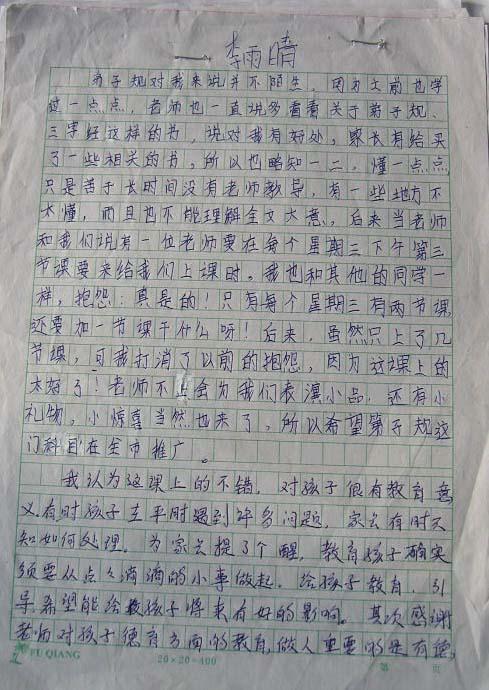 李雨晴
弟子规对我来说并不陌生，因为之前也学
过一点点，老师也一直说多看看关于弟子规、
三字经这样的书，说对我有好处，家长有给买
了一些相关的书，所以也略知一二，懂一点点
只是苦于长时间没有老师教导，有一些地方不
太懂，而且也不能理解全文大意，后来当老师
和我们说有一位老师要在每个星期三下午第三
节课要来给我们上课时，我也和其他的同学一
样，抱怨：真是的！只有每个星期三有两节课，
还要加一节课干什么呀！后来，虽然只上了几
节课，可我打消了以前的抱怨，因为这课上的
太好了！老师不 会为我们表演小品，还有小
礼物，小惊喜当然也来了，所以希望弟子规这
门科目在全市推广。
我认为这课上的不错，对孩子很有教育意
义，有时孩子在平时遇到许多问题，家长有时不
知如何处理。为家长提了个醒，教育孩子确实
须要从点点滴滴的小事做起。给孩子教育，引
导，希望能给孩子将来有好的影响。其次感谢
老师对孩子德育方面的教育，做人重要的是有德，
FU QIANG 20×20=400 第 页